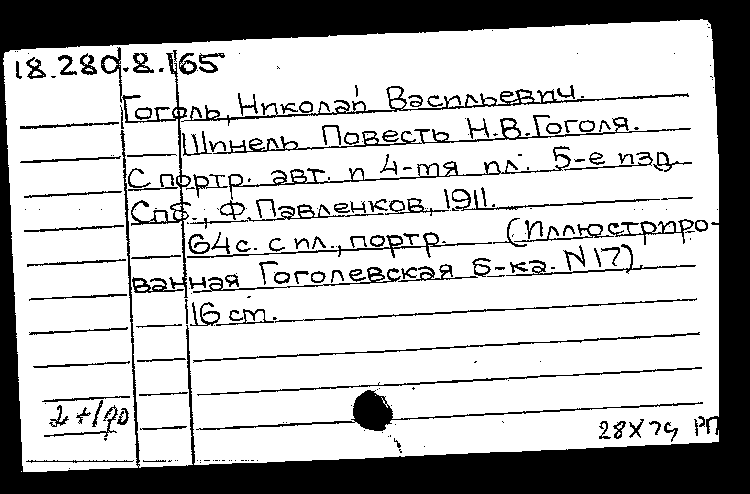 18.280.8.165
Гоголь, Николай Васильевич.
Шинель Повесть Н.В.Гоголя.
С портр. авт. и 4-мя ил. 5-е изд.
Спб., Ф.Павленков, 1911.
64с. с ил., портр. (Иллюстриро-
ванная Гоголевская б-ка. N17).
16 см.
28X74 РП